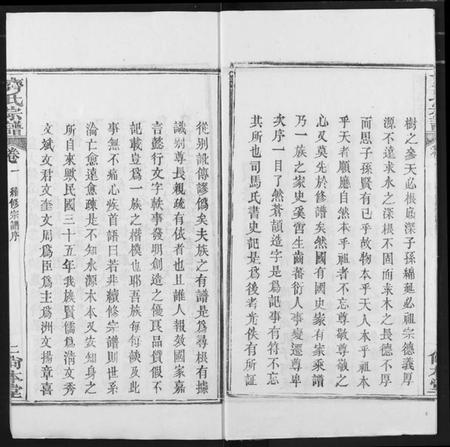 樹之參天必根底深子孫綿延必祖宗德義厚
源不遠求水之深根不固而求木之長德不厚
而思子孫賢有已乎故物本乎天人本乎祖本
乎天者順應自然本乎祖者不忘尊敬尊敬之
心又莫先於修譜矣然國有國史家有家乘譜
乃一族之家史奚啻生齒蕃衍人事變遷尊卑
次序一目了然蒼頡造字是為記事有符不忘
其所也司馬氏書史記是為後者光佚有所証
從別訛傳謬偽矣夫族之有譜是為尋根有據
識別尊長親疏有依者也且誰人報效國家嘉
言懿行文字軼事發明創造之優良品質假不
記載豈為一族之楷模也耶吾族每每談及此
事無不痛心疾首語曰若非續修宗譜則世系
淪亡愈遠愈疎是不知水源木本又安知身之
所自來歟民國三十五年我族賢儒為清文秀
文斌文君文奎文周為臣為主為洲文揚章喜
齊氏宗譜
卷一
續修宗譜序
二
尚本堂